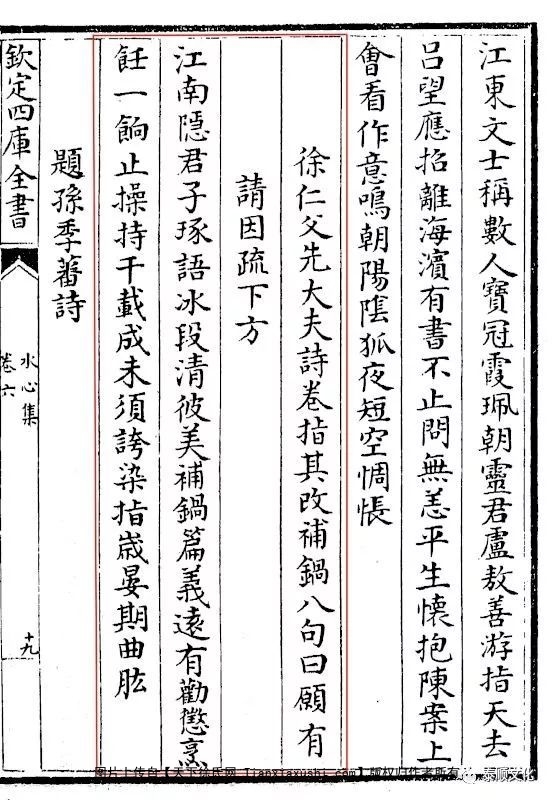 江東文士稱數人寶冠霞珮朝靈君盧敖善游指天去
呂望應招離海濵有書不止問無恙平生懷抱陳案上
會看作意鳴朝陽陰狐夜短空惆悵
徐仁父先大夫詩卷指其改補鍋八句曰願有
請因疏下方
江南隱君子琢語冰段清彼美補鍋篇義逺有勸懲烹
飪一餉止操持千載成未須誇染指嵗晏期曲肱
題孫季蕃詩
欽定四庫全書
水心集
卷六
十九
图片上传自【天下徐氏网 tianxiaxushi.com】版权归作者所有
泰顺文化